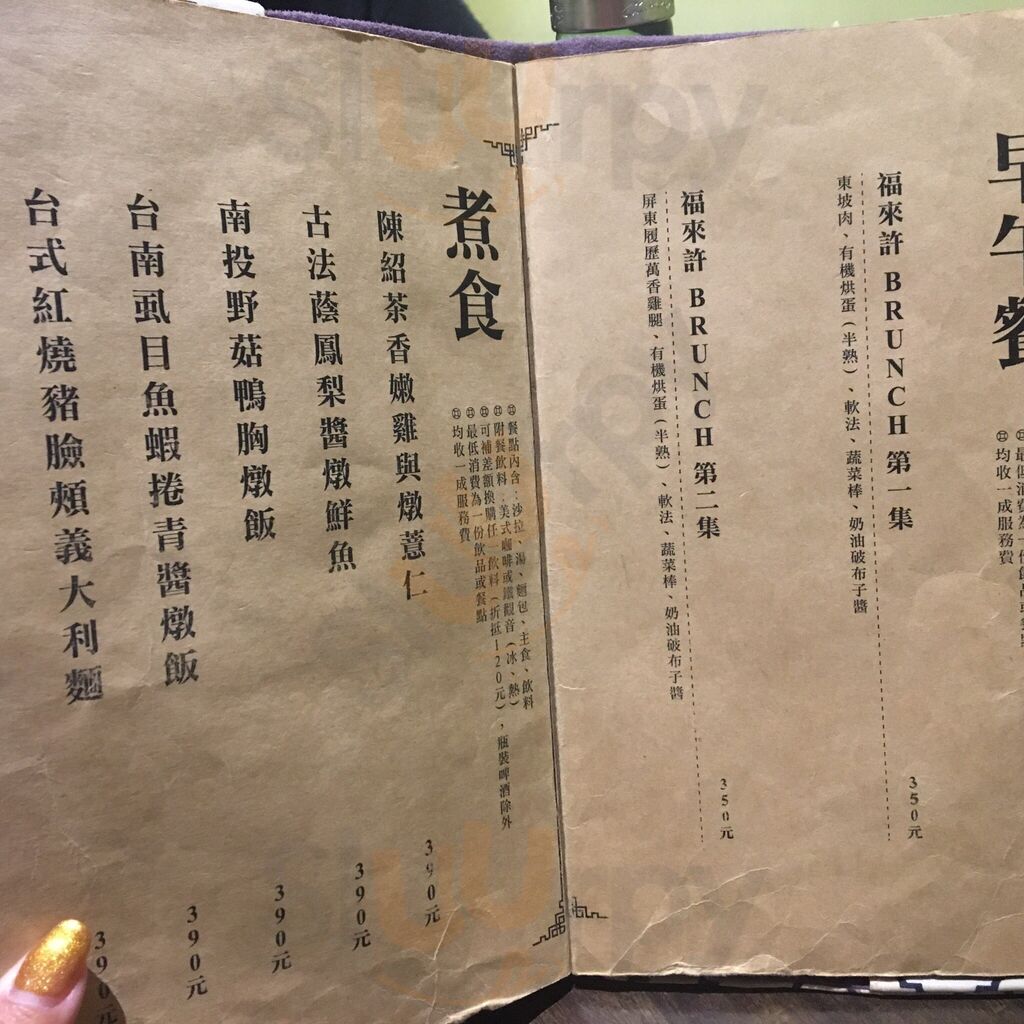 早午餐
均收一成服務費
福來許 BRUNCH 第一集
350元
東坡肉、有機烘蛋(半熟)、軟法、蔬菜棒、奶油破布子醬
福來許 BRUNCH 第二集
350元
屏東履歷萬香雞腿、有機烘蛋(半熟)、軟法、蔬菜棒、奶油破布子醬
煮食
餐點內含:沙拉、湯、麵包、主食、飲料
附餐飲料:美式咖啡或鐵觀音(冰、熱)
可補差額換購任一飲料(折抵120元),瓶裝啤酒除外
最低消費為一份飲品或餐點
均收一成服務費
陳紹茶香嫩雞與燉薏仁
390元
古法蔭鳳梨醬燉鮮魚
390元
南投野菇鴨胸燉飯
390元
台南虱目魚蝦捲青醬燉飯
390元
台式紅燒豬臉頰義大利麵
390元
slurpy